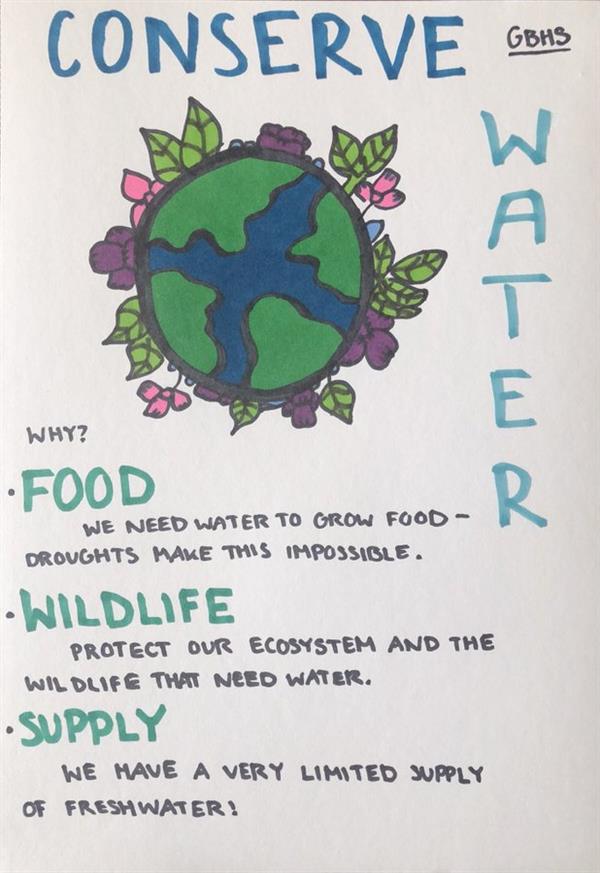 CONSERVE
GBHS
WATER
WHY?
·FOOD
WE NEED WATER TO GROW FOOD-
DROUGHTS MAKE THIS IMPOSSIBLE.
·WILDLIFE
PROTECT OUR ECOSYSTEM AND THE
WILDLIFE THAT NEED WATER.
·SUPPLY
WE HAVE A VERY LIMITED SUPPLY
OF FRESHWATER!